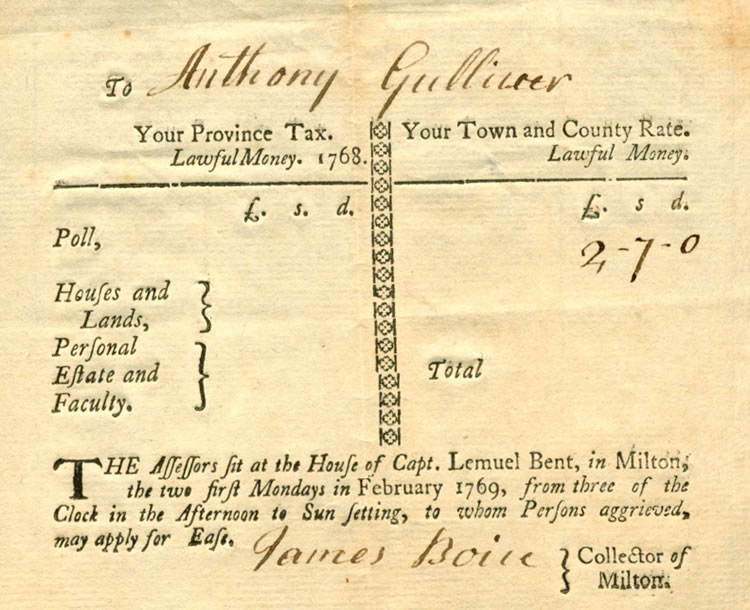 To Anthony Gulliver
Your Province Tax.
Lawful Money. 1768.
£. s. d.
Poll,
Houſes and
Lands,
Perſonal
Eſtate and
Faculty.
Your Town and County Rate.
Lawful Money.
£. s d.
2-7-0
Total
THE Aſſeſſors ſit at the Houſe of Capt. Lemuel Bent, in Milton,
the two firſt Mondays in February 1769, from three of the
Clock in the Afternoon to Sun ſetting, to whom Perſons aggrieved,
may apply for Eaſe.
James Boice
Collector of
Milton.